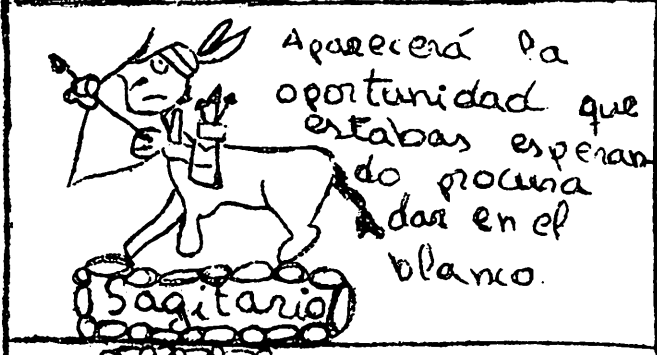 Aparecerá la
oportunidad que
estabas esperan
do procura
dar en el
blanco.
Sagitario